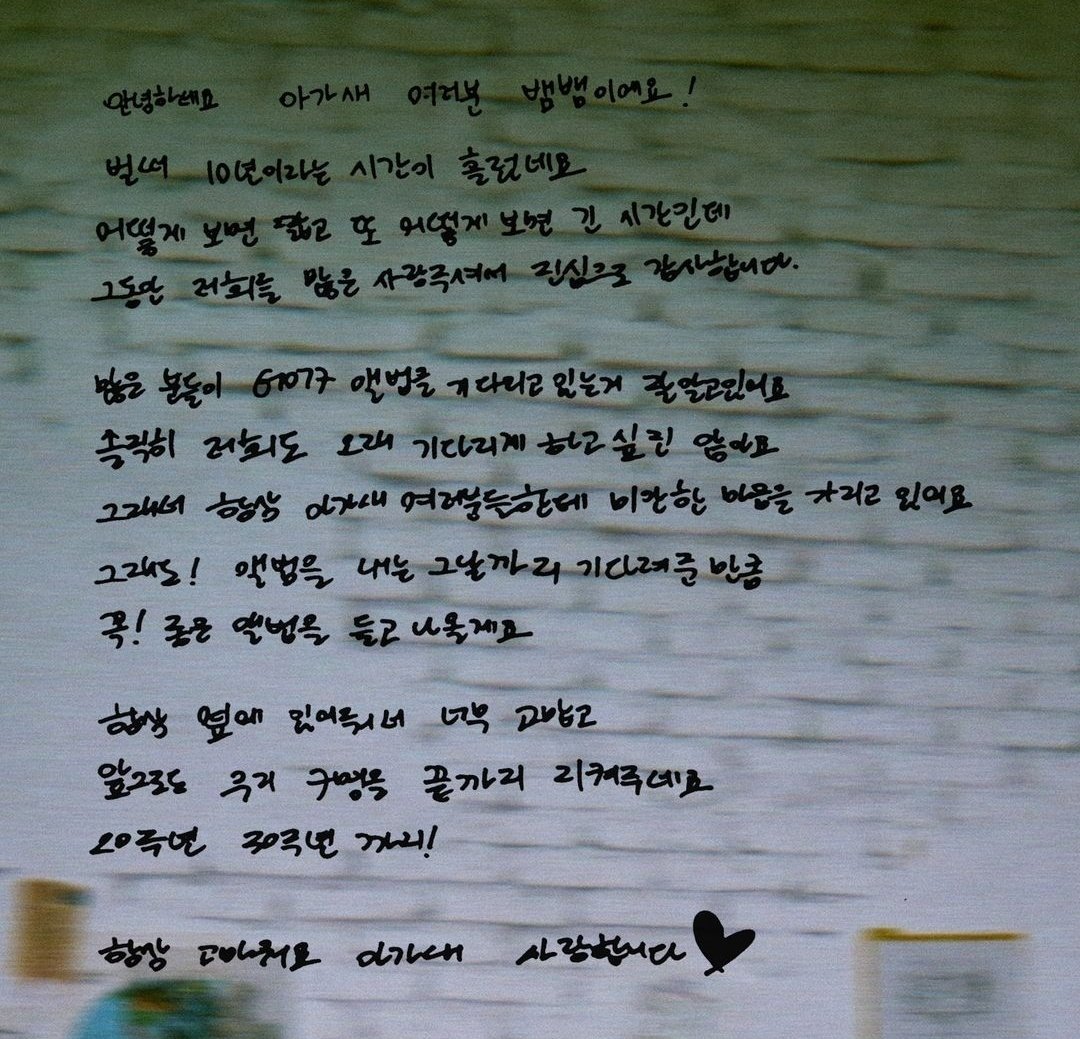 안녕하세요 아가새 여러분 뱀뱀이에요!
벌써 10년이라는 시간이 흘렀네요
어떻게 보면 짧고 또 어떻게 보면 긴 시간인데
그동안 저희를 많은 사랑주셔서 진심으로 감사합니다.
많은 분들이 GOT7 앨범을 기다리고 있는거 잘 알고있어요
솔직히 저희도 오래 기다리게 하고 싶진 않아요
그래서 항상 아가새 여러분들한테 미안한 마음을 가지고 있어요
그래도! 앨범을 내는 그날까지 기다려준 만큼
꼭! 좋은 앨범을 들고 나올게요
항상 옆에 있어줘서 너무 고맙고
앞으로도 우리 구명을 끝까지 지켜주세요
20주년 30주년 까지!
항상 고마워요 아가새 사랑합니다